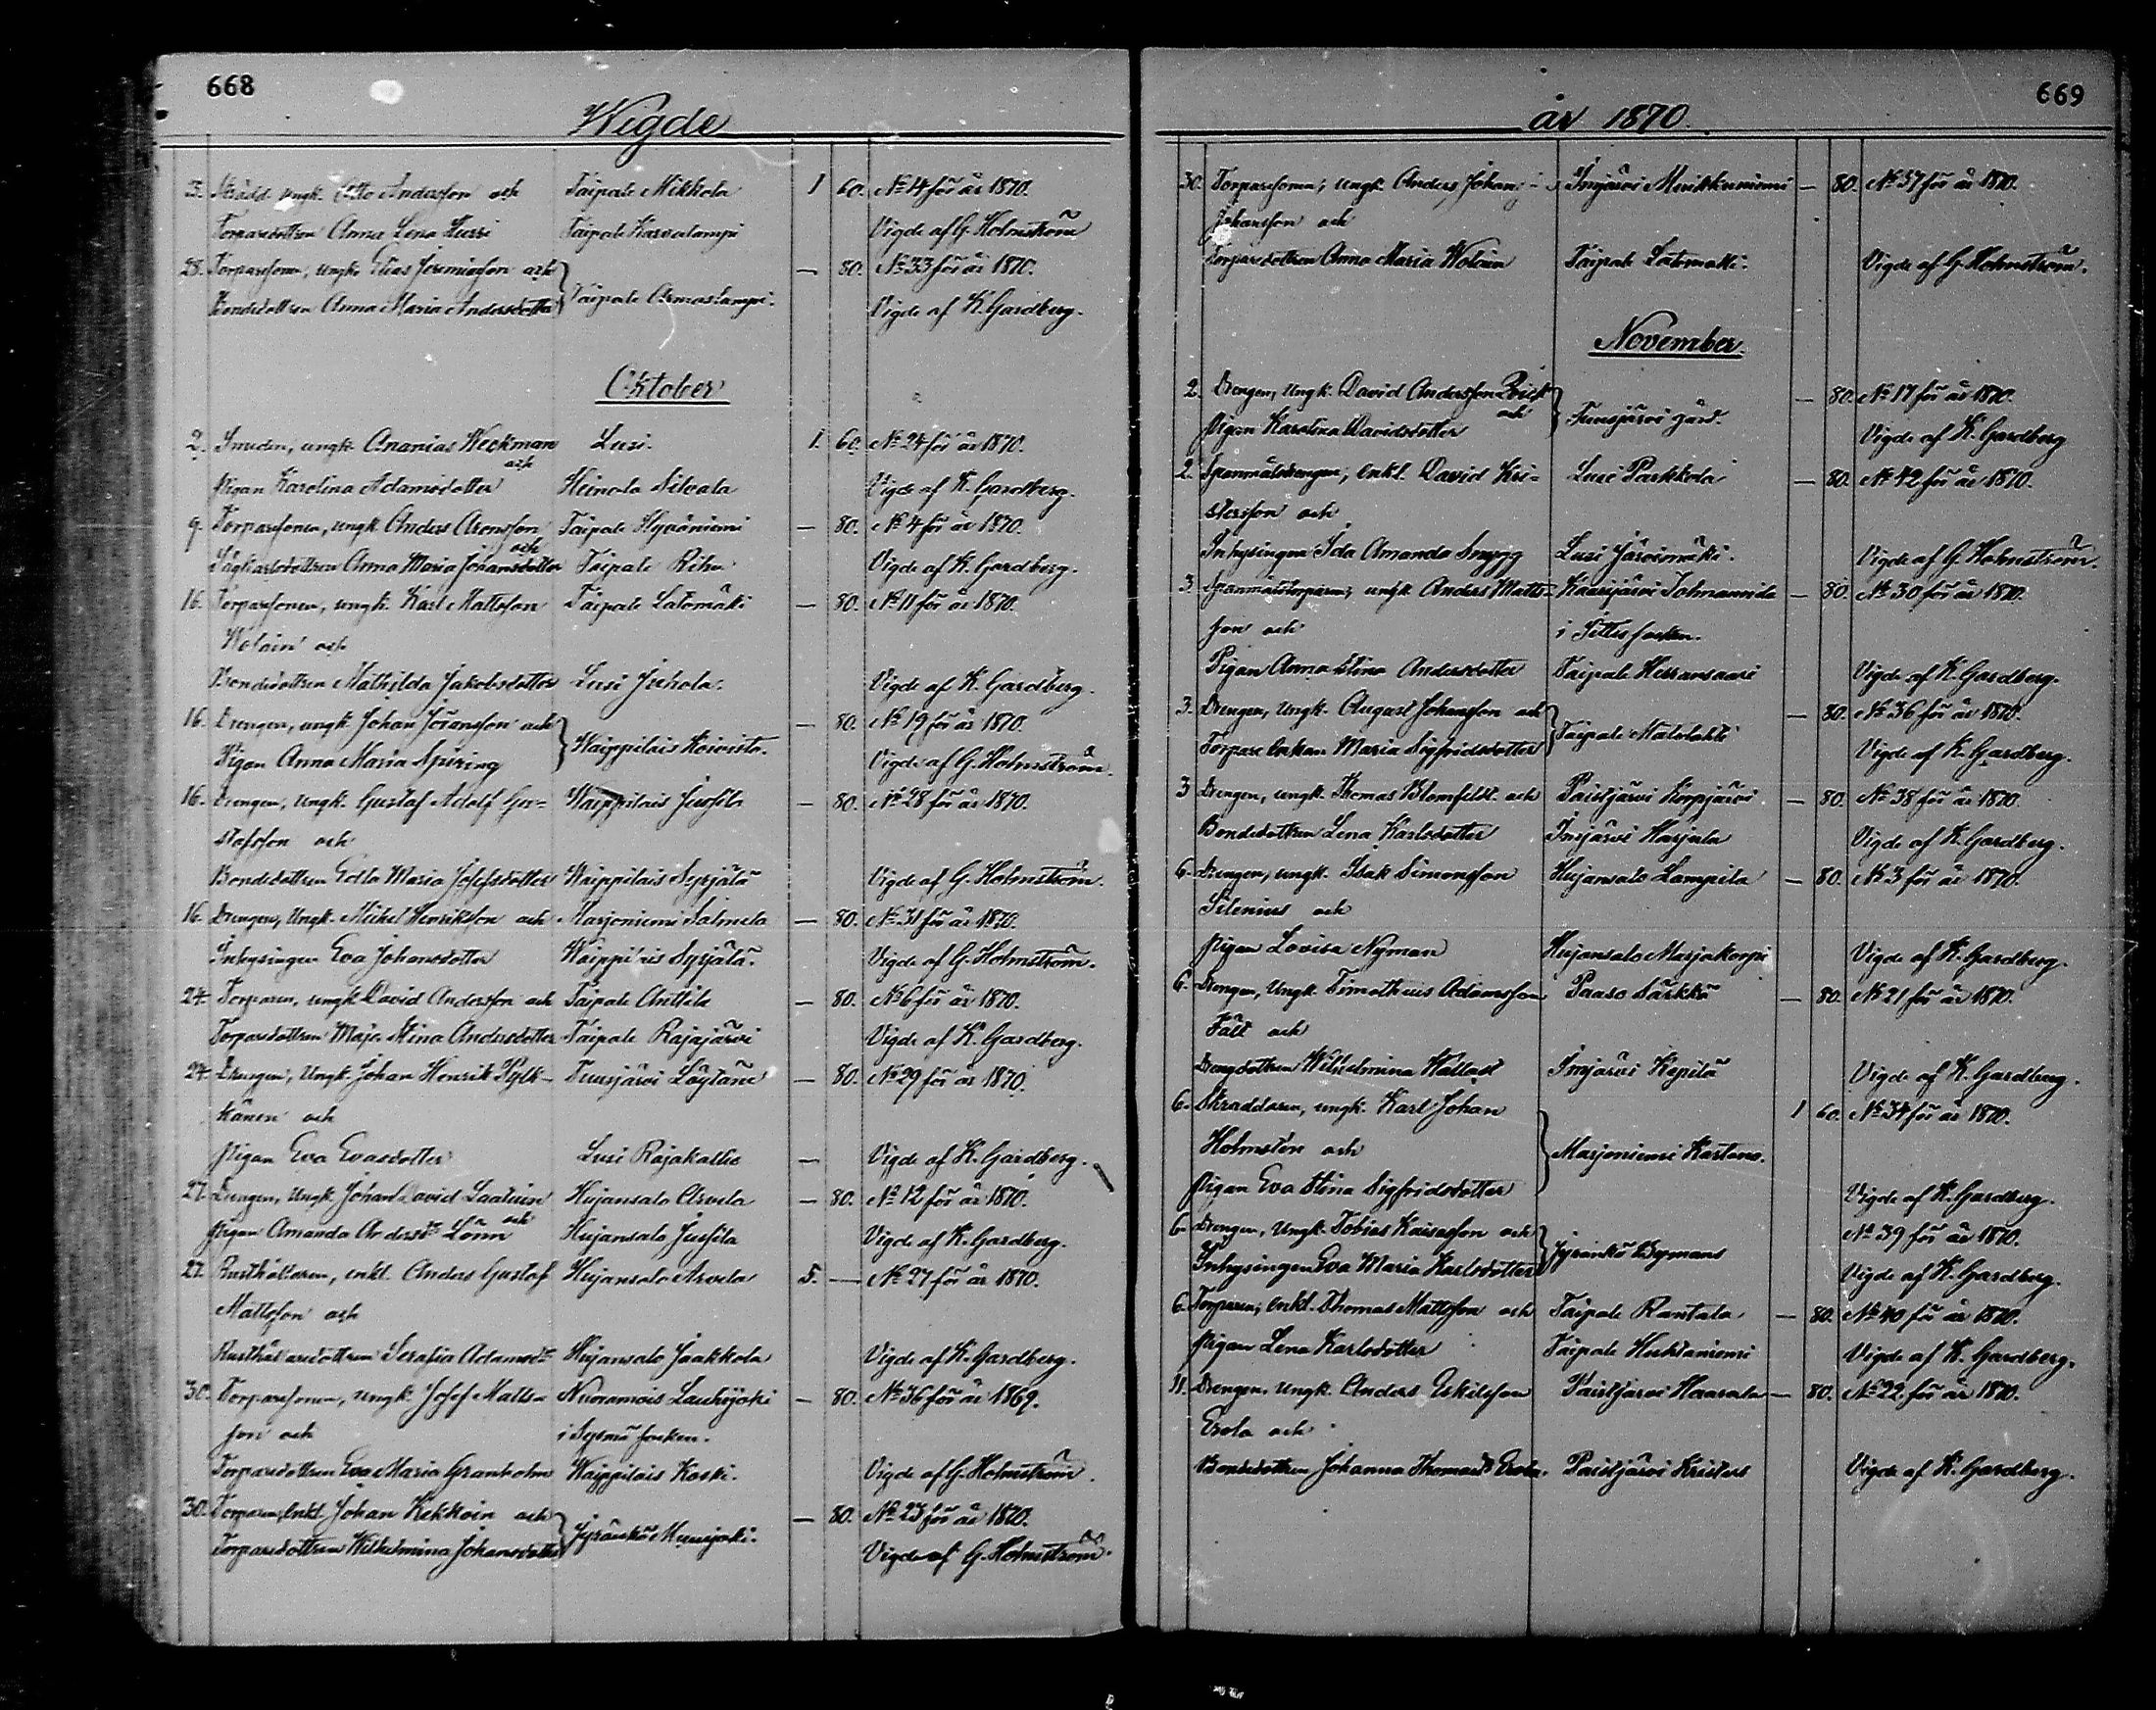 668
Wigde
25. Skrädd. ungk. Otto Andersson och Taipale Mikkola 1 60. No 14 för år 1870.
Torparedottren Anna Lena Hussi Taipale Karvalampi Vigde af G. Holmström
28. Torparesonen, ungk. Elias Jeremiasson och — 80. No 33 för år 1870.
Bondedottren Anna Maria Andersdotter Taipale Armaslampi. Vigde af K. Gardberg.
Oktober
2. Smeden, ungk. Ananias Weckman och Lusi. 1. 60. No 24 för år 1870.
Pigan Karolina Adamsdotter Heinola Silvala Vigde af K. Gardberg.
9. Torparesonen, ungk. Anders Aronsson och Taipale Hyväniemi — 80. No 4 för år 1870.
Anna Maria Johansdotter Taipale Rihu Vigde af K. Gardberg.
16. Torparesonen, ungk. Karl Mattsson Taipale Latomäki — 80. No 11 för år 1870.
Wolain och
Bondedottren Mathilda Jakobsdotter Lusi Juhola. Vigde af K. Gardberg.
16. Drengen, ungk. Johan Göransson och — 80. No 19 för år 1870.
Pigan Anna Maria Spiring Waippilais Koivisto. Vigde af G. Holmström.
16. Drengen, Ungk. Gustaf Adolf Gu- Waippilais Jussila — 80. No 28 för år 1870.
stafsson och
Bondedottren Edla Maria Josefsdotter Waippilais Syrjälä Vigde af G. Holmström.
16. Drengen, Ungk. Mikel Henriksson och Marjoniemi Salmela — 80. No 31 för år 1870.
Inhysingen Eva Johansdotter Waippilais Syrjälä. Vigde af G. Holmström.
24. Torparen, ungk. David Andersson och Taipale Anttila — 80. No 6 för år 1870.
Torparedottren Maja Stina Andersdotter Taipale Rajajärvi Vigde af K. Gardberg.
24. Drengen, Ungk. Johan Henrik Pylk- Tuusjärvi Löytäne — 80. No 29 för år 1870.
känen och
Pigan Eva Evasdotter Lusi Rajakallio — Vigde af K. Gardberg.
27. Drengen, Ungk. Johan David Laatuin och Hujansalo Arvela — 80. No 12 för år 1870.
Pigan Amanda Andersdr Lönn Hujansalo Jussila Vigde af K. Gardberg.
27. Rusthållaren, enkl. Anders Gustaf Hujansalo Arvela 5. — No 27 för år 1870.
Mattsson och
Rusthållaredottren Serafia Adamsdr Hujansalo Jaakkola Vigde af K. Gardberg.
30. Torparesonen, ungk. Josef Matts- Nuoramois Lauhijoki — 80. No 36 för år 1869.
son och i Sysmä socken.
Torparedottren Eva Maria Granholm Waippilais Koski. Vigde af G. Holmström.
30. Torparen, Enkl. Johan Kekkoin och — 80. No 23 för år 1870.
Torparedottren Wilhelmina Johansdotter Jyränkö Myllyjoki. Vigde af G. Holmström.
669
år 1870.
30. Torparesonen, Ungk. Anders Johan Imjärvi Muikkuniemi — 80. No 37 för år 1870.
Johansson och
Torparedottren Anna Maria Wolain Taipale Latomäki. Vigde af G. Holmström.
November.
2. Drengen, Ungk. David Andersson och — 80. No 17 för år 1870.
Pigan Karolina Davidsdotter Tuusjärvi gård. Vigde af K. Gardberg
2. Spannmålsdrengen, Enkl. David Kri- Lusi Parkkola — 80. No 42 för år 1870.
stersson och
Inhysingen Ida Amanda Snygg Lusi Järvimäki. Vigde af G. Holmström.
3. Spannmålstorparen, ungk. Anders Matts- Kaarijärvi — 80. No 30 för år 1870.
son och i Sittis socken.
Pigan Anna Stina Andersdotter Taipale Herransaari Vigde af K. Gardberg.
3. Drengen, Ungk. August Johansson och — 80. No 36 för år 1870.
Torpare Enkan Maria Sigfridsdotter Taipale Matolahti Vigde af K. Gardberg.
3 Drengen, ungk. Thomas Blomfeldt och Paistjärvi Korpijärvi — 80. No 38 för år 1870.
Bondedottren Lena Karlsdotter Imjärvi Harjula Vigde af K. Gardberg.
6. Drengen, ungk. Isak Simonsson Hujansalo Lampila — 80. No 3 för år 1870.
Silenius och
Pigan Lovisa Nyman Hujansalo Marjokorpi Vigde af K. Gardberg.
6. Drengen, Ungk. Timotheus Adamsson Paaso Särkkä — 80. No 21 för år 1870.
Fält och
Drengdottren Wilhelmina Wallast Imjärvi Kopila Vigde af K. Gardberg.
6. Skräddaren, ungk. Karl Johan 1 60. No 34 för år 1870.
Holmstén och Marjoniemi Kartano.
Pigan Eva Stina Sigfridsdotter Vigde af K. Gardberg.
6. Drengen, Ungk. Tobias Kaisasson och No 39 för år 1870.
Inhysingen Eva Maria Karlsdotter Jyränkö Vigde af K. Gardberg.
6. Torparen, Enkl. Thomas Mattsson och Taipale Rantala — 80. No 40 för år 1870.
Pigan Lena Karlsdotter Taipale Huhtaniemi Vigde af K. Gardberg.
11. Drengen, Ungk. Anders Eskilsson Paistjärvi Haarala — 80. No 22 för år 1870.
Erola och
Bondedottren Johanna Thomasdr Erola. Paistjärvi Kristers Vigde af K. Gardberg.